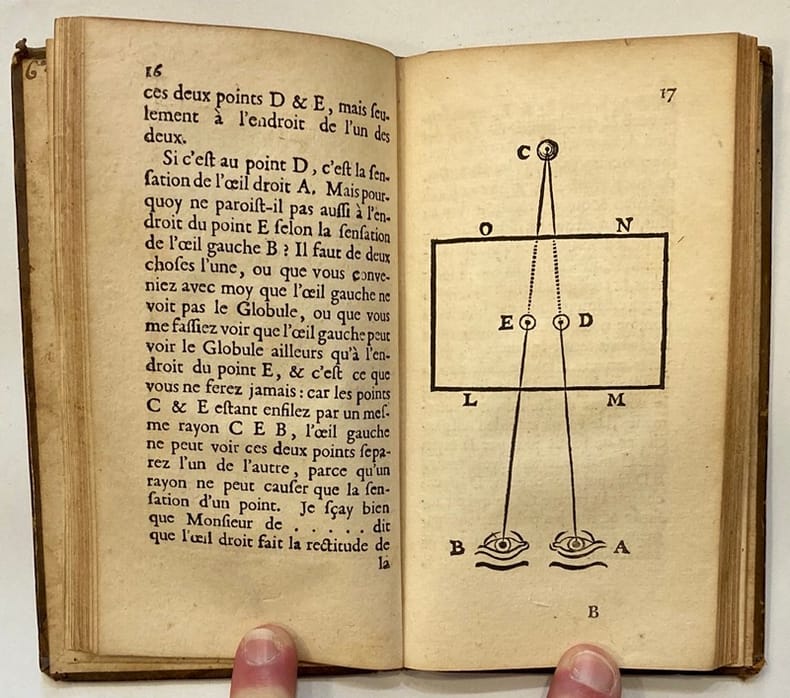 16
ces deux points D & E, mais ſeu-
lement à l'endroit de l'un des
deux.
Si c'eſt au point D, c'eſt la ſen-
ſation de l'œil droit A. Mais pour-
quoy ne paroiſt-il pas auſſi à l'en-
droit du point E ſelon la ſenſation
de l'œil gauche B ? Il faut de deux
choſes l'une, ou que vous conve-
niez avec moy que l'œil gauche ne
voit pas le Globule, ou que vous
me faſſiez voir que l'œil gauche peut
voir le Globule ailleurs qu'à l'en-
droit du point E, & c'eſt ce que
vous ne ferez jamais : car les points
C & E eſtant enfilez par un meſ-
me rayon C E B, l'œil gauche
ne peut voir ces deux points ſepa-
rez l'un de l'autre, parce qu'un
rayon ne peut cauſer que la ſen-
ſation d'un point. Je ſçay bien
que Monſieur de . . . . . dit
que l'œil droit fait la rectitude de
la
17
C
O N
E D
L M
B A
B